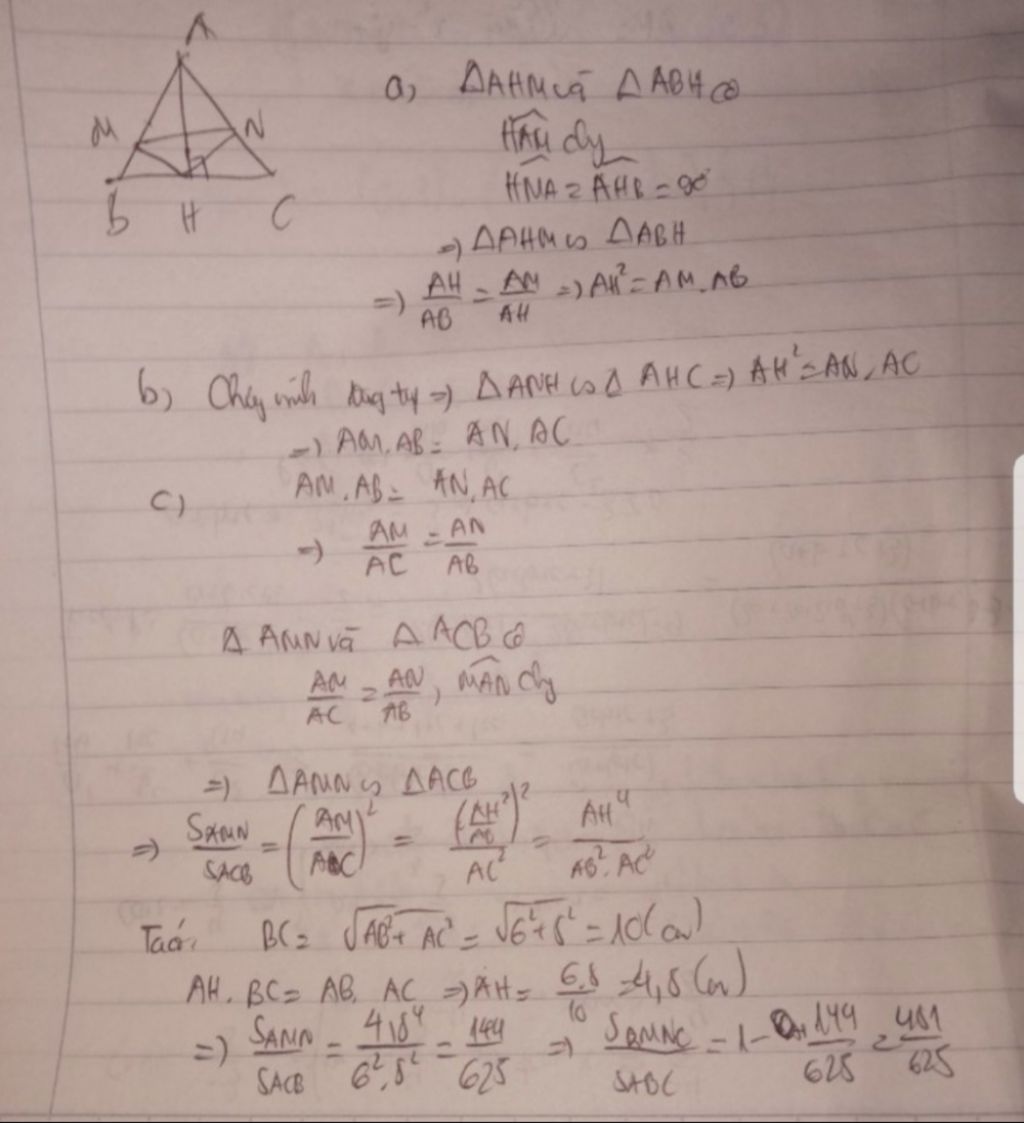 A
M
N
B
H
C
a, ΔAHM và ΔABH có
HAM chg
HNA = AHB = 90°
=) ΔAHM ∽ ΔABH
=) AH/AB = AM/AH =) AH² = AM.AB
b, Chứng minh tương tự =) ΔANH ∽ Δ AHC =) AH² = AN.AC
=) AM.AB = AN.AC
c) AM.AB = AN.AC
=) AM/AC = AN/AB
Δ AMN và Δ ACB có
AM/AC = AN/AB, MAN chg
=) ΔAMN ∽ ΔACB
=) SAMN/SACB = (AM/AC)² = (AH²/AB)²/AC² = AH⁴/AB².AC²
Ta có: BC = √AB²+AC² = √6²+8² = 10(cm)
AH.BC = AB.AC =) AH = 6.8/10 = 4,8(cm)
=) SAMN/SACB = 4,8⁴/6².8² = 144/625 =) SBMNC/SABC = 1 - 144/625 = 481/625